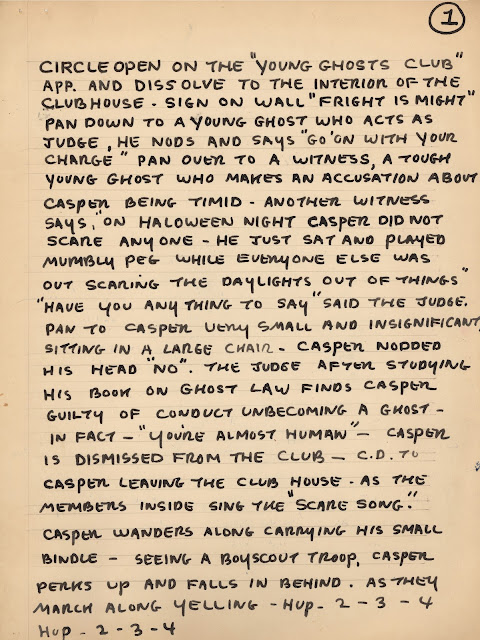 1
CIRCLE OPEN ON THE "YOUNG GHOSTS CLUB"
APP. AND DISSOLVE TO THE INTERIOR OF THE
CLUBHOUSE - SIGN ON WALL "FRIGHT IS MIGHT"
PAN DOWN TO A YOUNG GHOST WHO ACTS AS
JUDGE, HE NODS AND SAYS "GO ON WITH YOUR
CHARGE" PAN OVER TO A WITNESS, A TOUGH
YOUNG GHOST WHO MAKES AN ACCUSATION ABOUT
CASPER BEING TIMID - ANOTHER WITNESS
SAYS, "ON HALOWEEN NIGHT CASPER DID NOT
SCARE ANYONE - HE JUST SAT AND PLAYED
MUMBLY PEG WHILE EVERYONE ELSE WAS
OUT SCARING THE DAYLIGHTS OUT OF THINGS"
"HAVE YOU ANY THING TO SAY" SAID THE JUDGE.
PAN TO CASPER VERY SMALL AND INSIGNIFICANT,
SITTING IN A LARGE CHAIR - CASPER NODDED
HIS HEAD "NO". THE JUDGE AFTER STUDYING
HIS BOOK ON GHOST LAW FINDS CASPER
GUILTY OF CONDUCT UNBECOMING A GHOST -
IN FACT - "YOU'RE ALMOST HUMAN" - CASPER
IS DISMISSED FROM THE CLUB - C.D. TO
CASPER LEAVING THE CLUB HOUSE - AS THE
MEMBERS INSIDE SING THE "SCARE SONG."
CASPER WANDERS ALONG CARRYING HIS SMALL
BINDLE - SEEING A BOYSCOUT TROOP, CASPER
PERKS UP AND FALLS IN BEHIND. AS THEY
MARCH ALONG YELLING - HUP - 2 - 3 - 4
HUP - 2 - 3 - 4